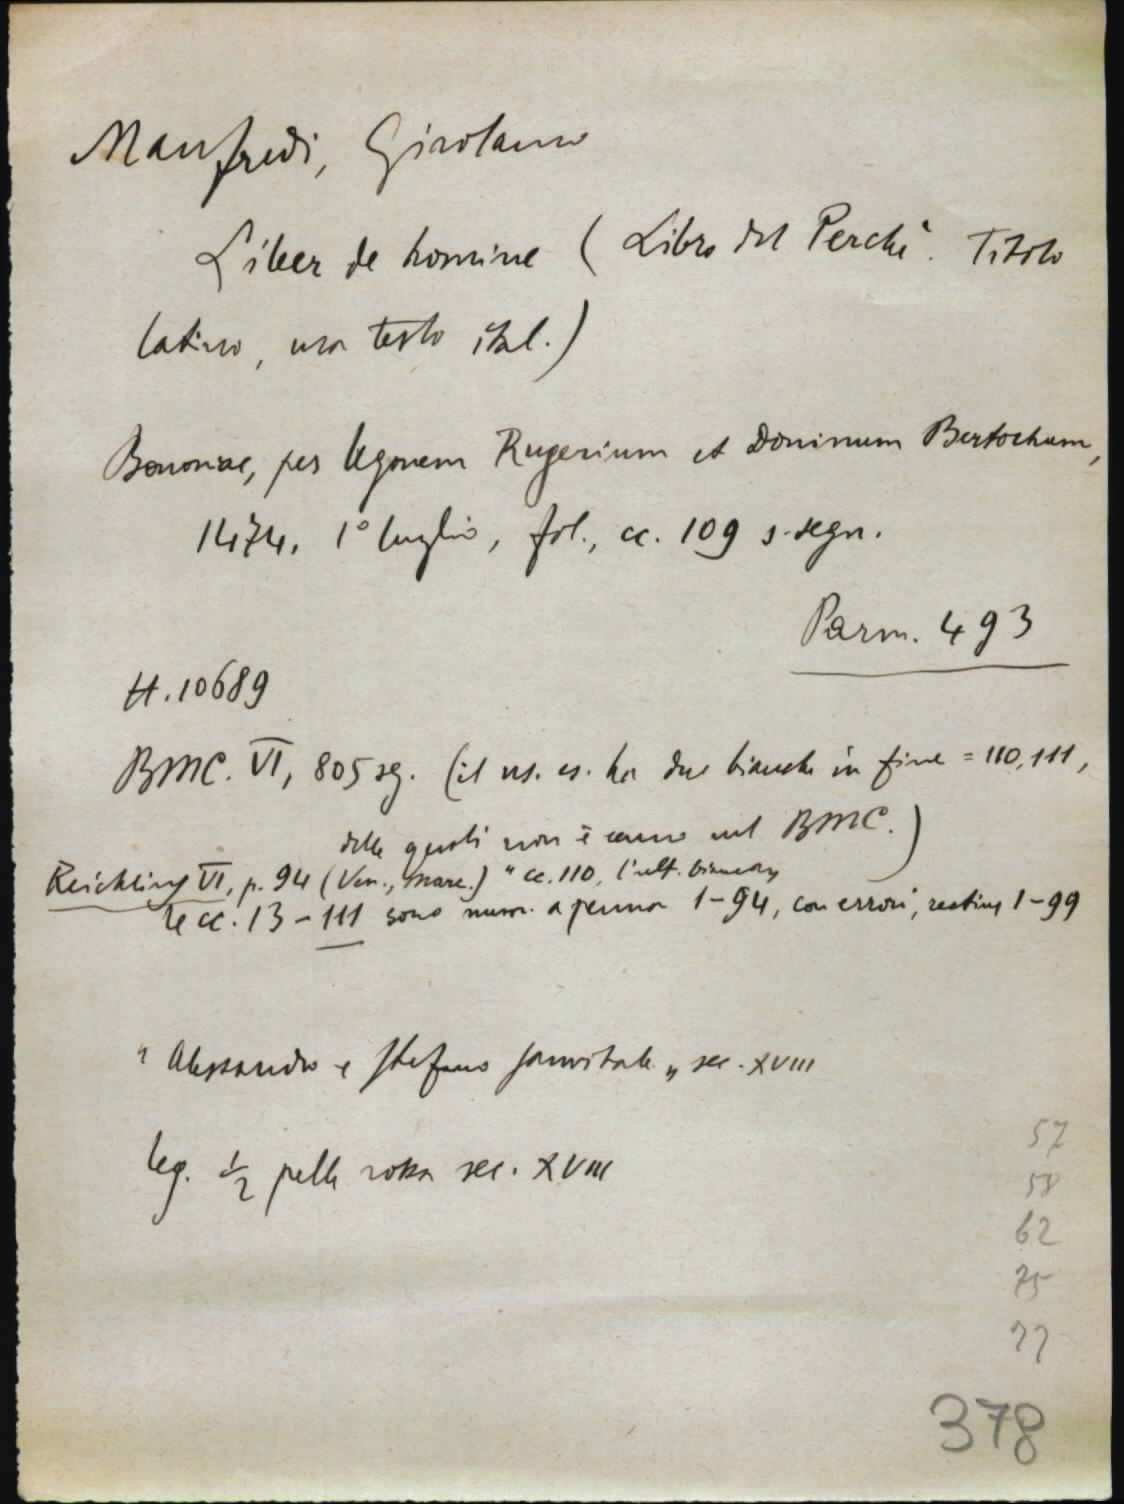 Manfredi, Girolamo
Liber de homine (Libro del Perchè. Titolo
latino, ma testo ital.)
Bononiae, per Ugonem Rugerium et Doninum Bertochum,
1474, 1° luglio, fol., cc. 109 s. segn.
Parm. 493
H. 10689
BMC. VI, 805 sg. (il ns. es. ha due bianche in fine = 110, 111,
delle quali non è cenno nel BMC.)
Reichling VI, p. 94 (Ven., Marc.) "cc. 110, l'ult. bianca"
le cc. 13 - 111 sono num. a penna 1-94, con errori, rectius 1-99
"Alessandro e Stefano Sanvitale" sec. XVIII
leg. 1/2 pelle rossa sec. XVIII
57
58
62
75
77
378